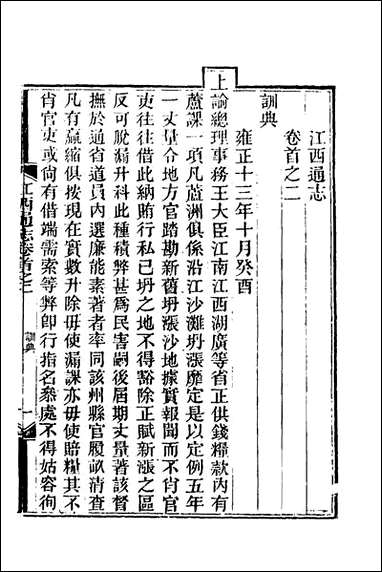 江西通志
卷首之二
訓典
雍正十三年十月癸酉
上諭總理事務王大臣江南江西湖廣等省正供錢糧款內有
蘆課一項凡蘆洲俱係沿江沙灘坍漲靡定是以定例五年
一丈量令地方官踏勘新舊坍漲沙地據實報聞而不肖官
吏往往借此納賄行私已坍之地不得豁除正賦新漲之區
反可脫漏升科此種積弊甚為民害嗣後屆期丈量著該督
撫於通省道員內選廉能素著者率同該州縣官履畝清查
凡有贏縮俱按現在實數升除毋使漏課亦毋使賠糧其不
肖官吏或尙有借端需索等弊卽行指名叅處不得姑容徇
江西通志卷首之二
訓典
一